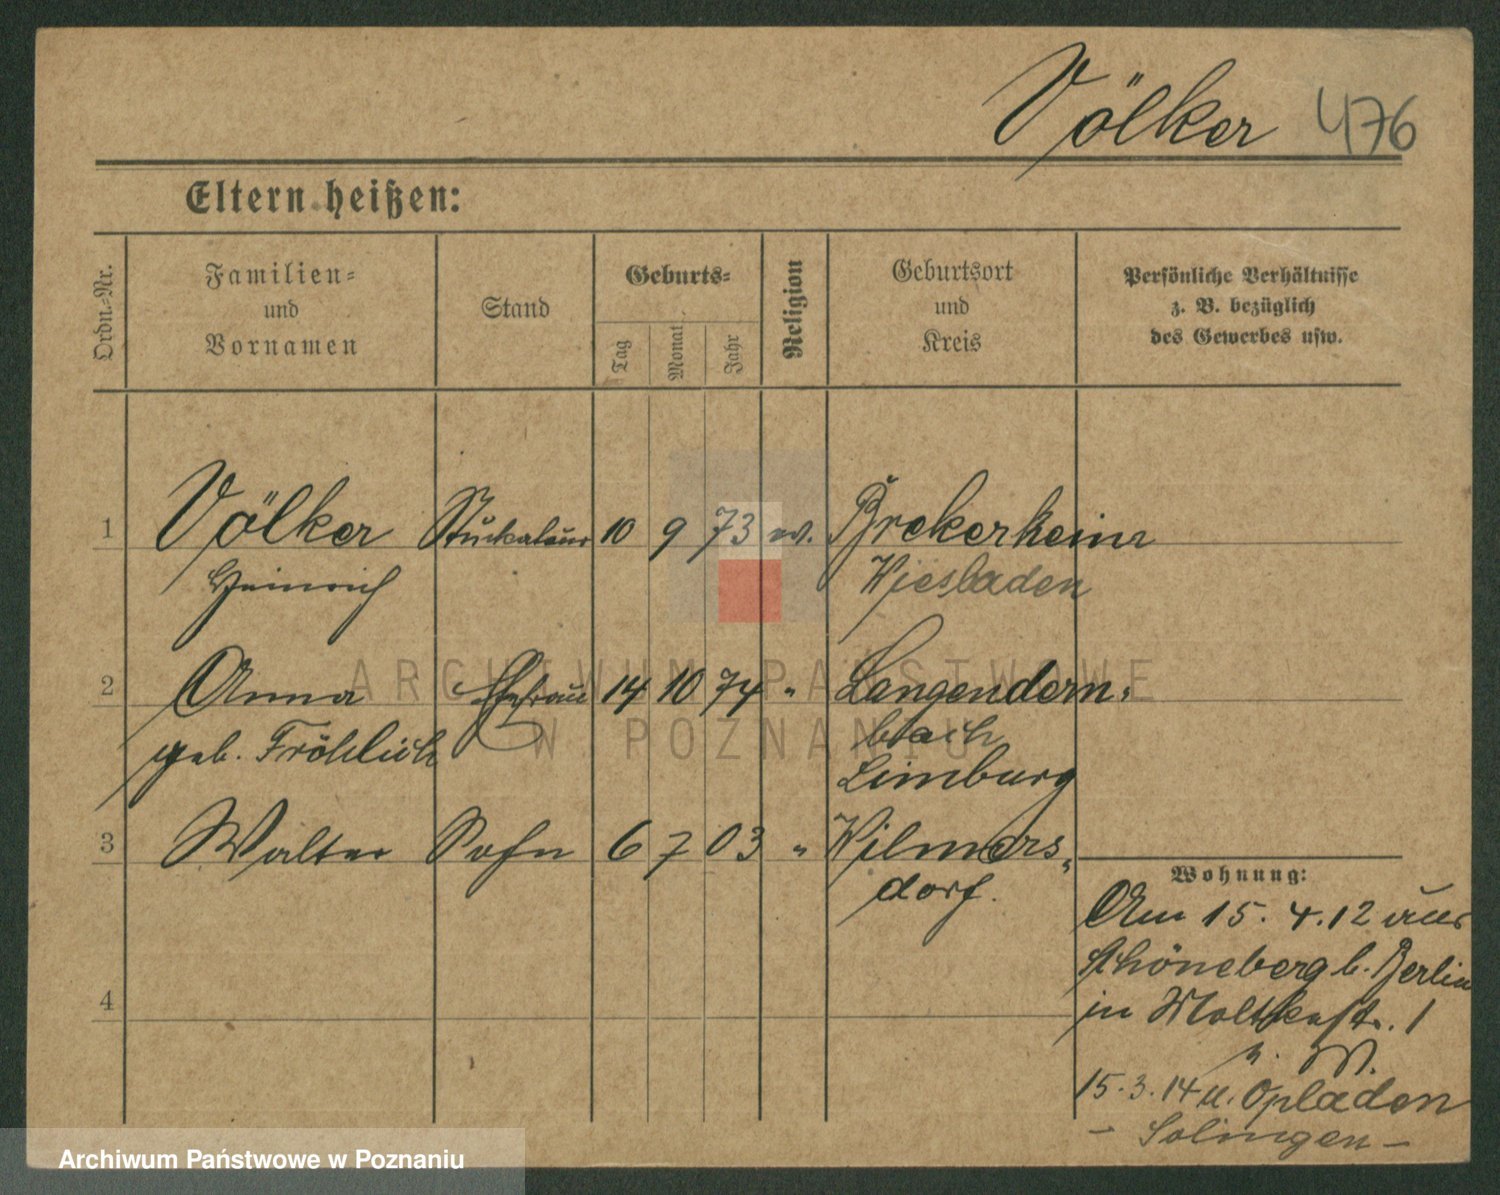 Völker 476
Eltern heißen:
Ordn.-Nr.
Familien-
und
Vornamen
Stand
Geburts-
Tag
Monat
Jahr
Religion
Geburtsort
und
Kreis
Persönliche Verhältnisse
z. B. bezüglich
des Gewerbes usw.
1 Völker Stuckateur 10 9 73 ev. Brekerheim
Heinrich Wiesbaden
2 Anna Ehefrau 14 10 74 " Langendern-
geb. Fröhlich bach
Limburg
3 Walter Sohn 6 7 03 " Wilmers-
dorf.
Wohnung:
Am 15. 4. 12 aus
Schöneberg b. Berlin
in Moltkestr. 1
15. 3. 14 n. Opladen
- Solingen -
4
ARCHIWUM PAŃSTWOWE
W POZNANIU
Archiwum Państwowe w Poznaniu